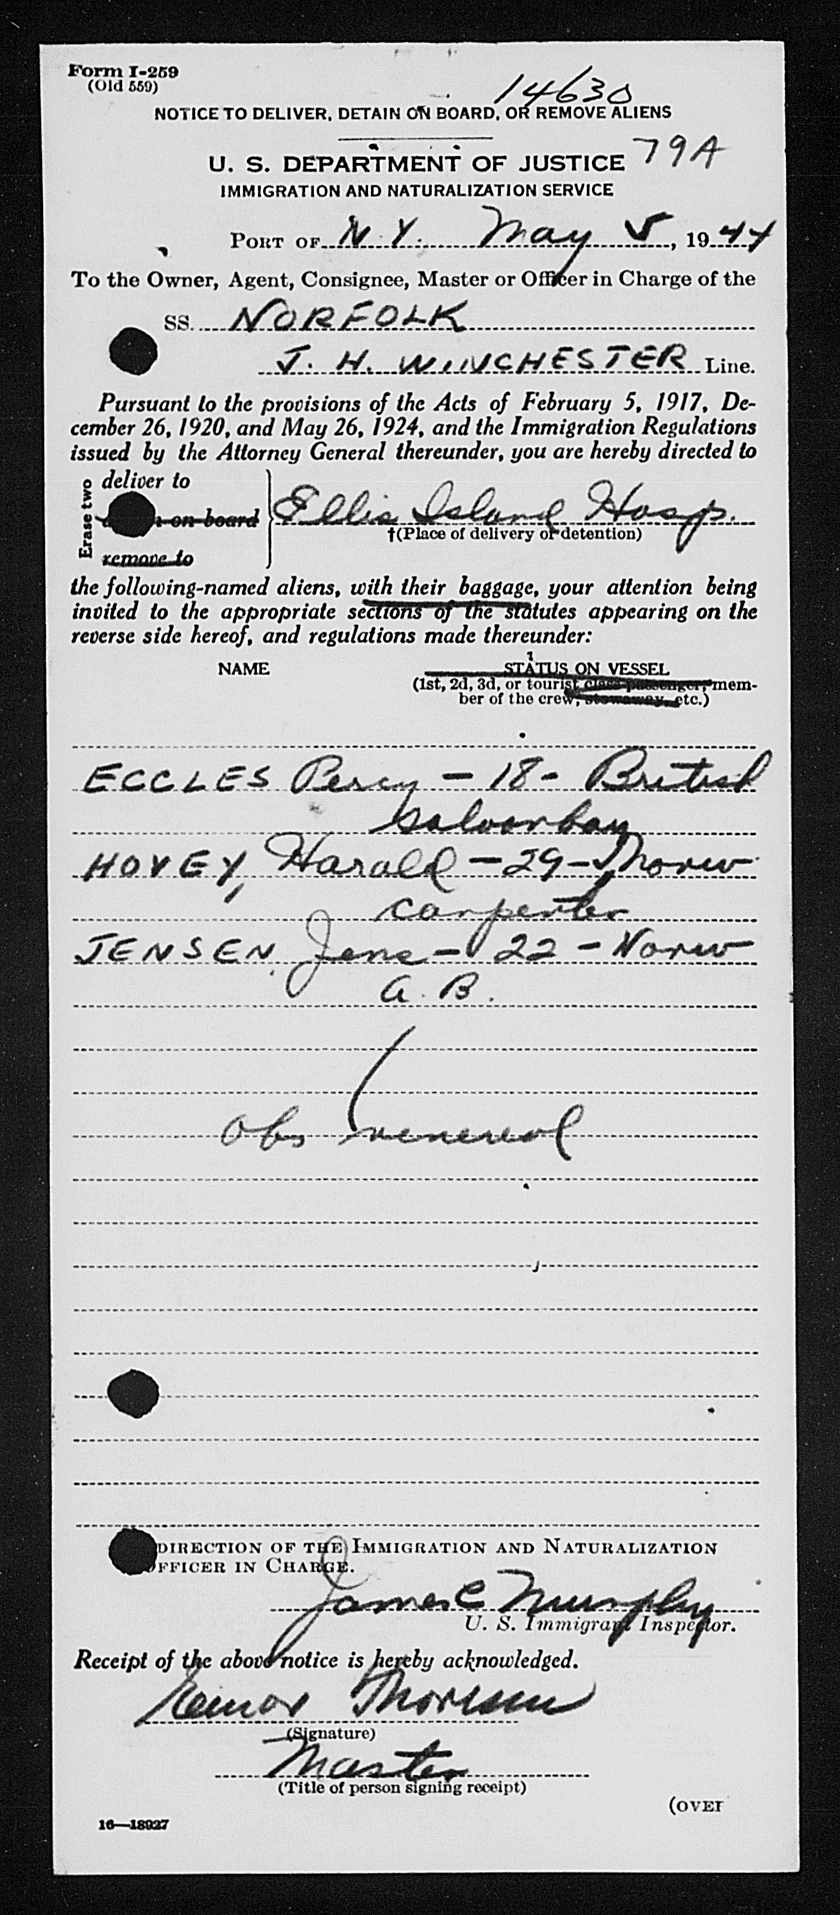 Form I-259
(Old 559)
14630
NOTICE TO DELIVER, DETAIN ON BOARD, OR REMOVE ALIENS
79A
U. S. DEPARTMENT OF JUSTICE
IMMIGRATION AND NATURALIZATION SERVICE
PORT OF N.Y. May 5, 1944
To the Owner, Agent, Consignee, Master or Officer in Charge of the
SS. NORFOLK
J. H. WINCHESTER Line.
Pursuant to the provisions of the Acts of February 5, 1917, De-
cember 26, 1920, and May 26, 1924, and the Immigration Regulations
issued by the Attorney General thereunder, you are hereby directed to
Erase two
deliver to
on board
remove to
Ellis Island Hosp.
†(Place of delivery or detention)
the following-named aliens, with their baggage, your attention being
invited to the appropriate sections of the statutes appearing on the
reverse side hereof, and regulations made thereunder:
NAME
STATUS ON VESSEL
(1st, 2d, 3d, or tourist class passenger, mem-
ber of the crew, stowaway, etc.)
ECCLES Percy - 18 - British
Saloonboy
HOVEY, Harald - 29 - Norw
Carpenter
JENSEN Jens - 22 - Norw
A.B.
Obs venereal
DIRECTION OF THE IMMIGRATION AND NATURALIZATION
OFFICER IN CHARGE.
James C Murphy
U. S. Immigrant Inspector.
Receipt of the above notice is hereby acknowledged.
Thoresen
(Signature)
Master
(Title of person signing receipt)
(OVER
16—18927